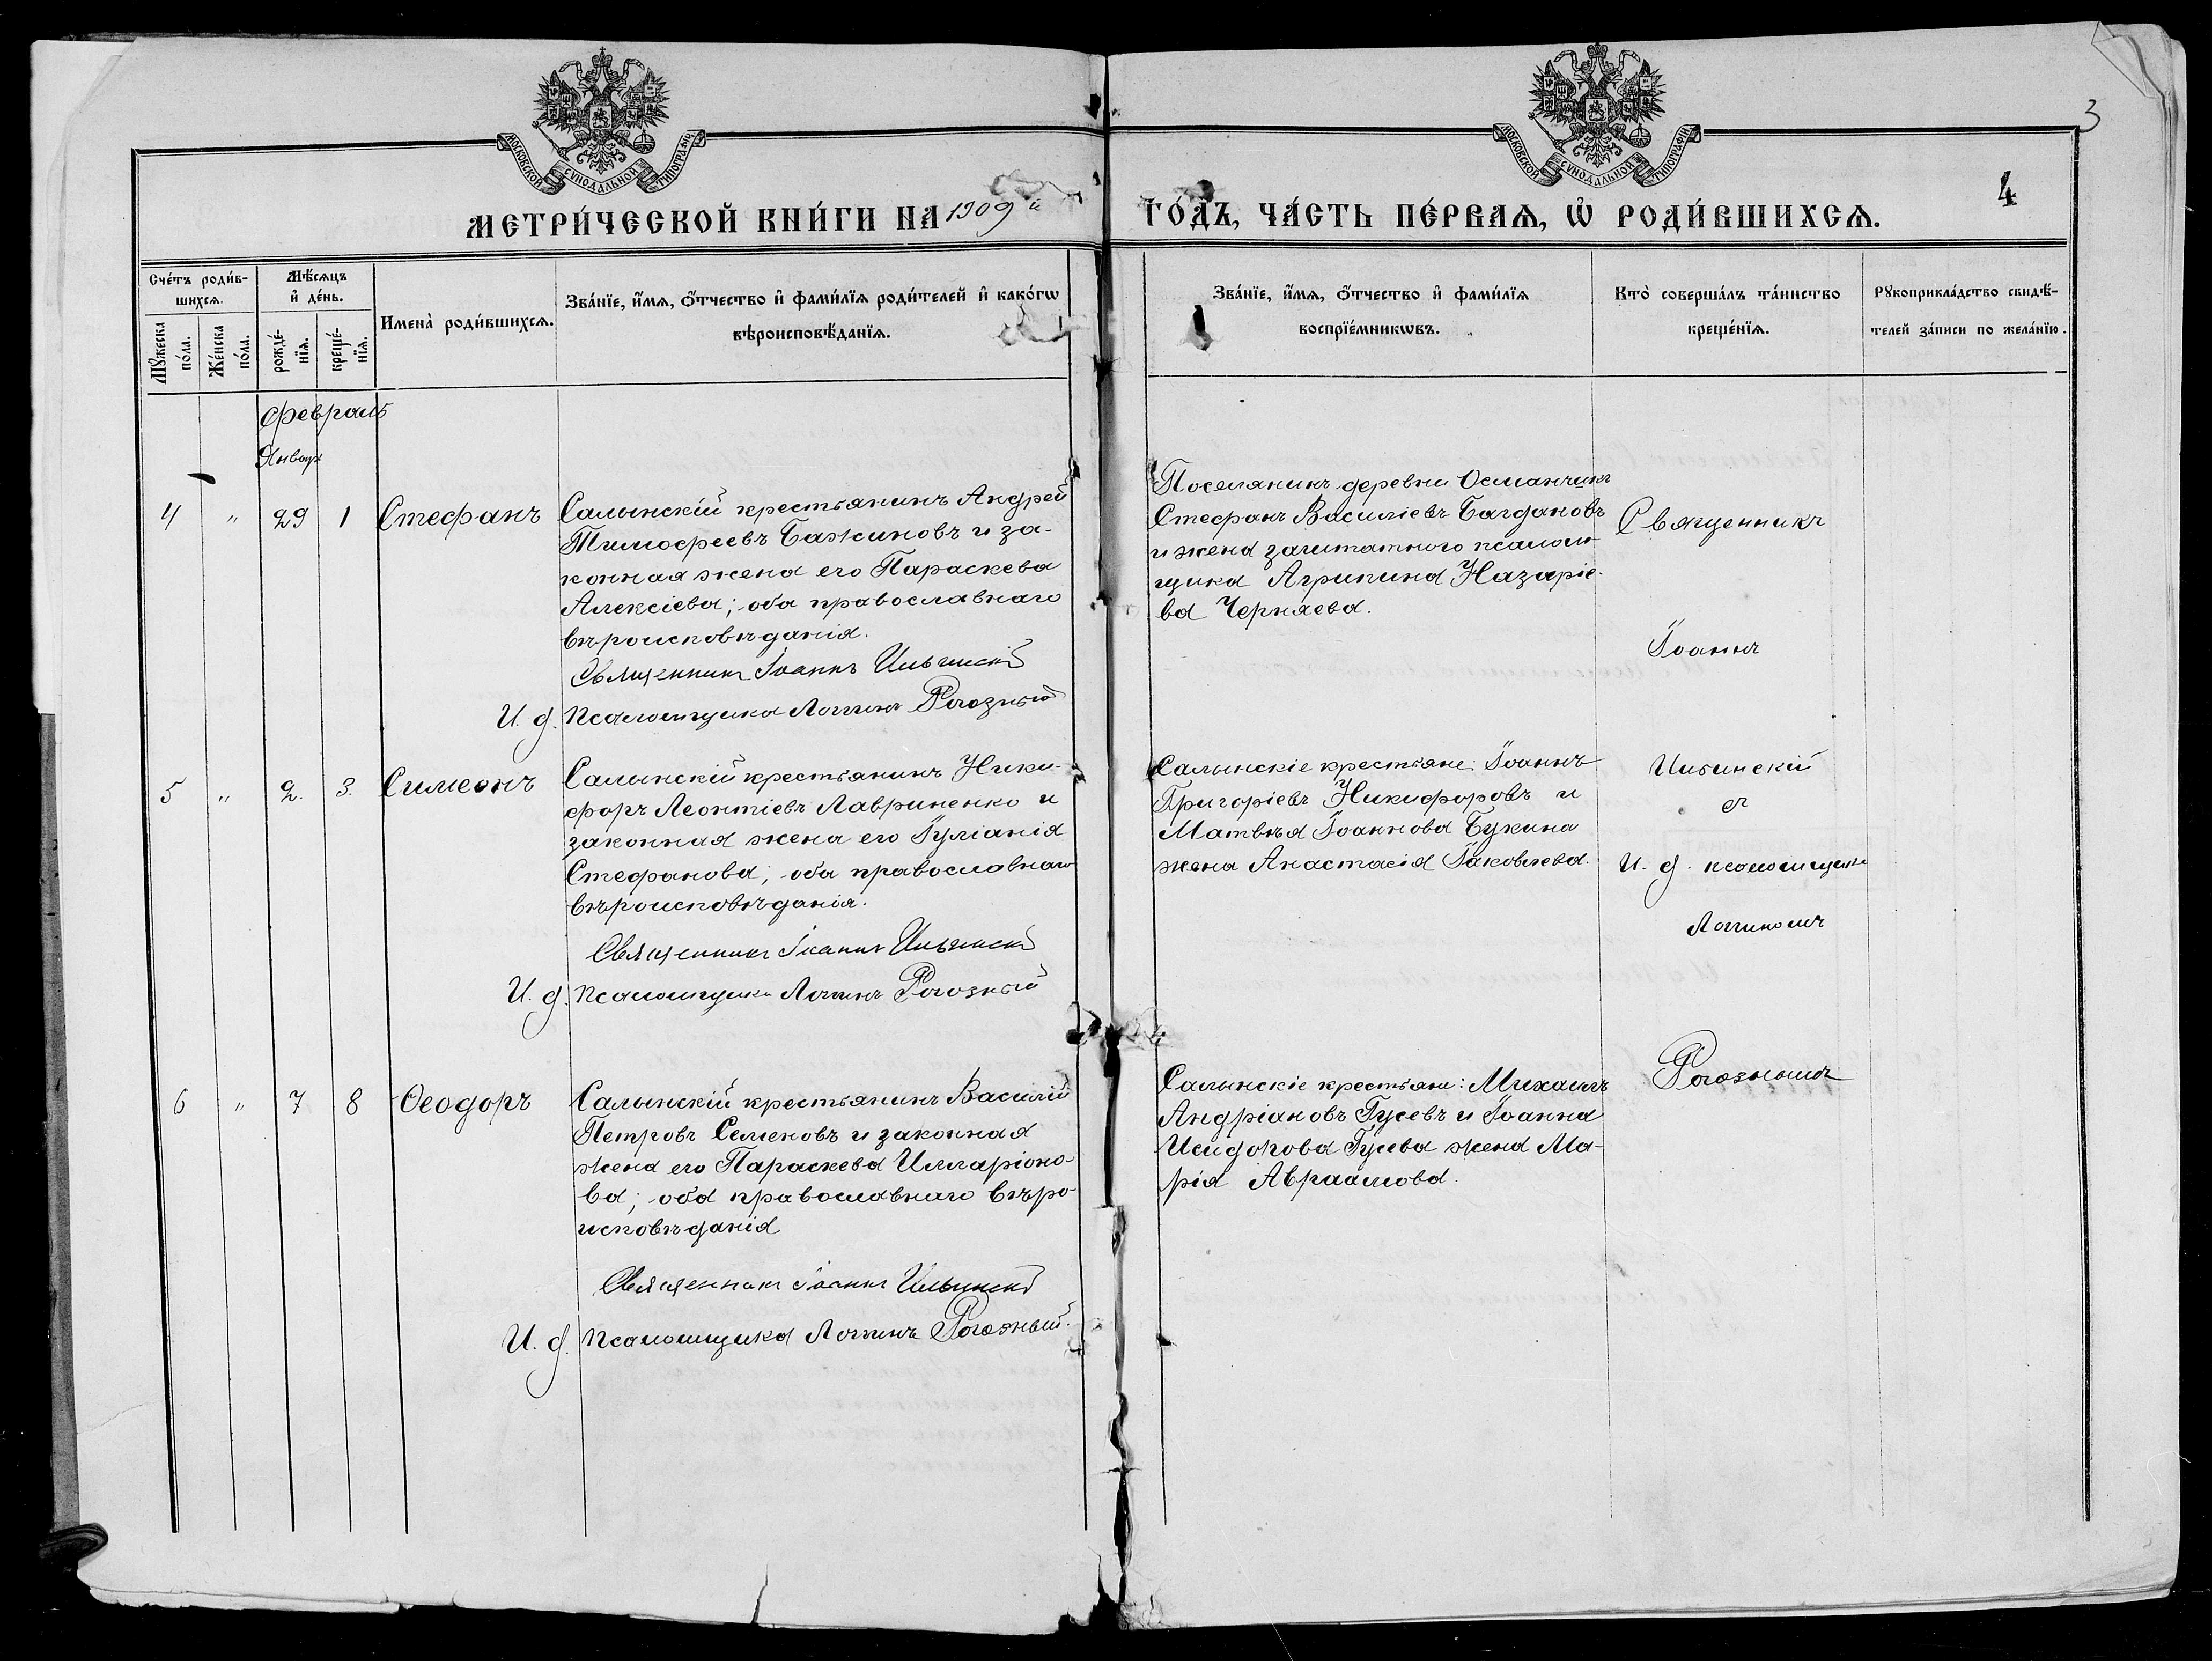 МОСКОВСКОЙ СѴНОДАЛЬНОЙ ТИПОГРАФІИ
МОСКОВСКОЙ СѴНОДАЛЬНОЙ ТИПОГРАФІИ
3
4
МЕТРИ́ЧЕСКОЙ КНИ́ГИ НА 1909й ГО́ДЪ, ЧА́СТЬ ПЕ́РВАѦ, Ѡ҆ РОДИ́ВШИХСѦ.
Сче́тъ роди́в-
шихсѧ.
Мꙋ́жеска по́ла.
Же́нска по́ла.
Мѣ́сѧцъ
и҆ де́нь.
рожде́-
нїѧ.
креще́-
нїѧ.
Имена̀ роди́вшихсѧ.
Зва́нїе, и҆́мѧ, ѻ҆́тчество и҆ фами́лїѧ роди́телей и҆ како́гѡ
вѣроисповѣ́данїѧ.
Зва́нїе, и҆́мѧ, ѻ҆́тчество и҆ фами́лїѧ
воспрїе́мникѡвъ.
Кто̀ соверша́лъ та́инство
креще́нїѧ.
Рꙋкоприкла́дство свидѣ́-
телей за́писи по жела́нїю.
Февраль
Январ
4 " 29 1 Стефанъ
Салынскій крестьянинъ Андрей
Тимофеевъ Бажиновъ и за-
конная жена его Параскева
Алексіева; оба православнаго
вѣроисповѣданія.
Священникъ Іоаннъ Ильинскій
И. д. псаломщика Логгинъ Рогозный
Поселянинъ деревни Османчикъ
Стефанъ Василіевъ Багдановъ
и жена заштатного псалом-
щика Агрипина Назаріе-
ва Черняева.
5 " 2. 3. Симеонъ
Салынскій крестьянинъ Ники-
форъ Леонтіевъ Лавриненко и
законная жена его Іуліанія
Стефанова; оба православнаго
вѣроисповѣданія.
Священникъ Іоаннъ Ильинскій
И. д. псаломщика Логгинъ Рогозный
Салынскіе крестьяне: Іоаннъ
Григоріевъ Никифоровъ и
Матвѣя Іоаннова Букина
жена Анастасія Іаковлева.
6 " 7 8 Ѳеодоръ
Салынскій крестьянинъ Василій
Петровъ Семеновъ и законная
жена его Параскева Илларіоно-
ва; оба православнаго вѣро-
исповѣданія
Священникъ Іоаннъ Ильинскій
И. д. псаломщика Логгинъ Рогозный.
Салынскіе крестьяне: Михаилъ
Андріановъ Гусевъ и Іоанна
Исидорова Гусева жена Ма-
рія Авраамова.
Священникъ
Іоаннъ
Ильинскій
съ
И. д. псаломщика
Логгиномъ
Рогознымъ